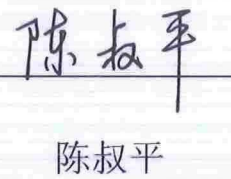 陈叔平
陈叔平